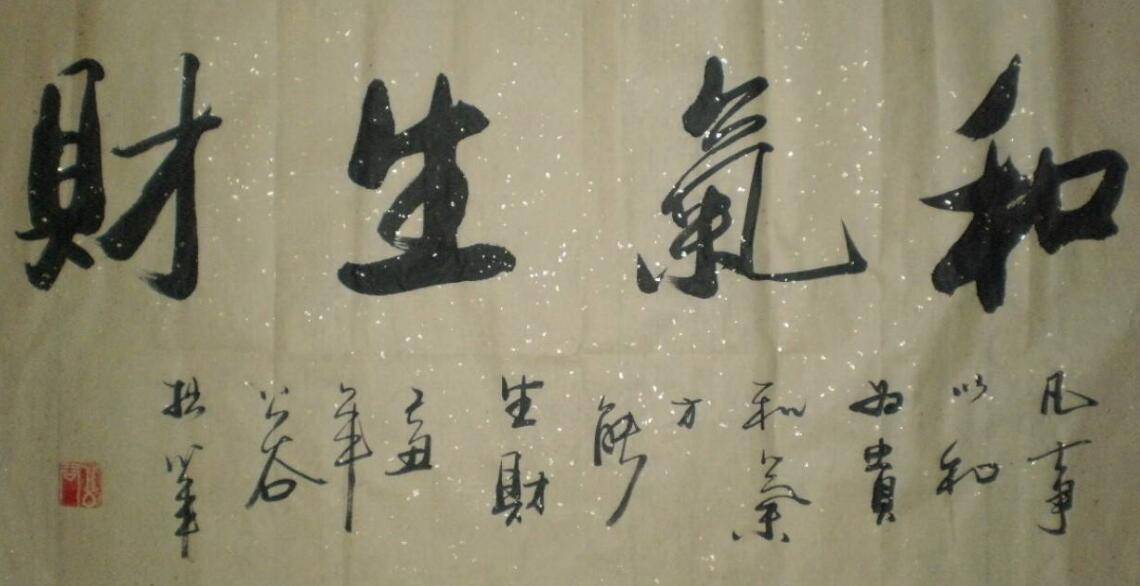 和氣生財
凡事
以和
為貴
和氣
方
能
生財
己丑
年
公谷
拙筆